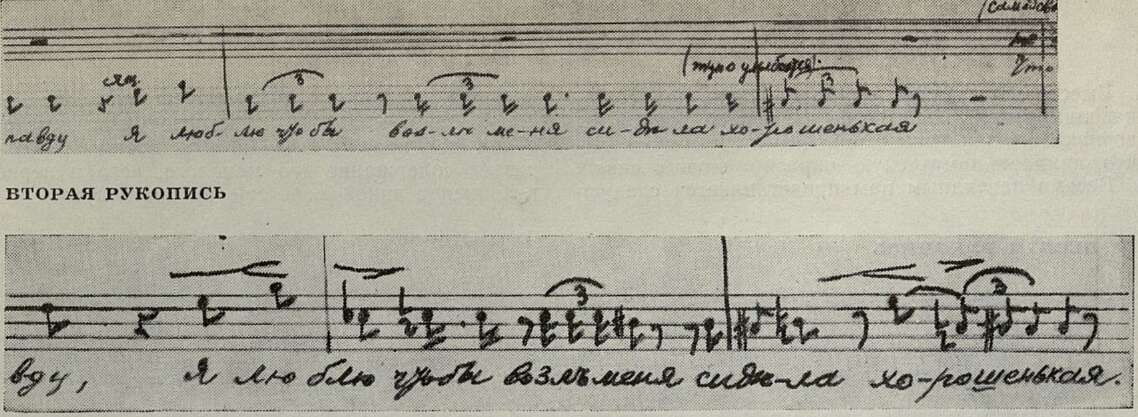 (самодово
ящ
(тупо улыбаяся).
3 3 3
Что
павду я люб-лю чтобы воз-ль ме-ня си-де-ла хо-рошенькая
ВТОРАЯ РУКОПИСЬ
3 3
вду, я лю блю чтобы возлѣ меня сидѣ-ла хо-рошенькая.